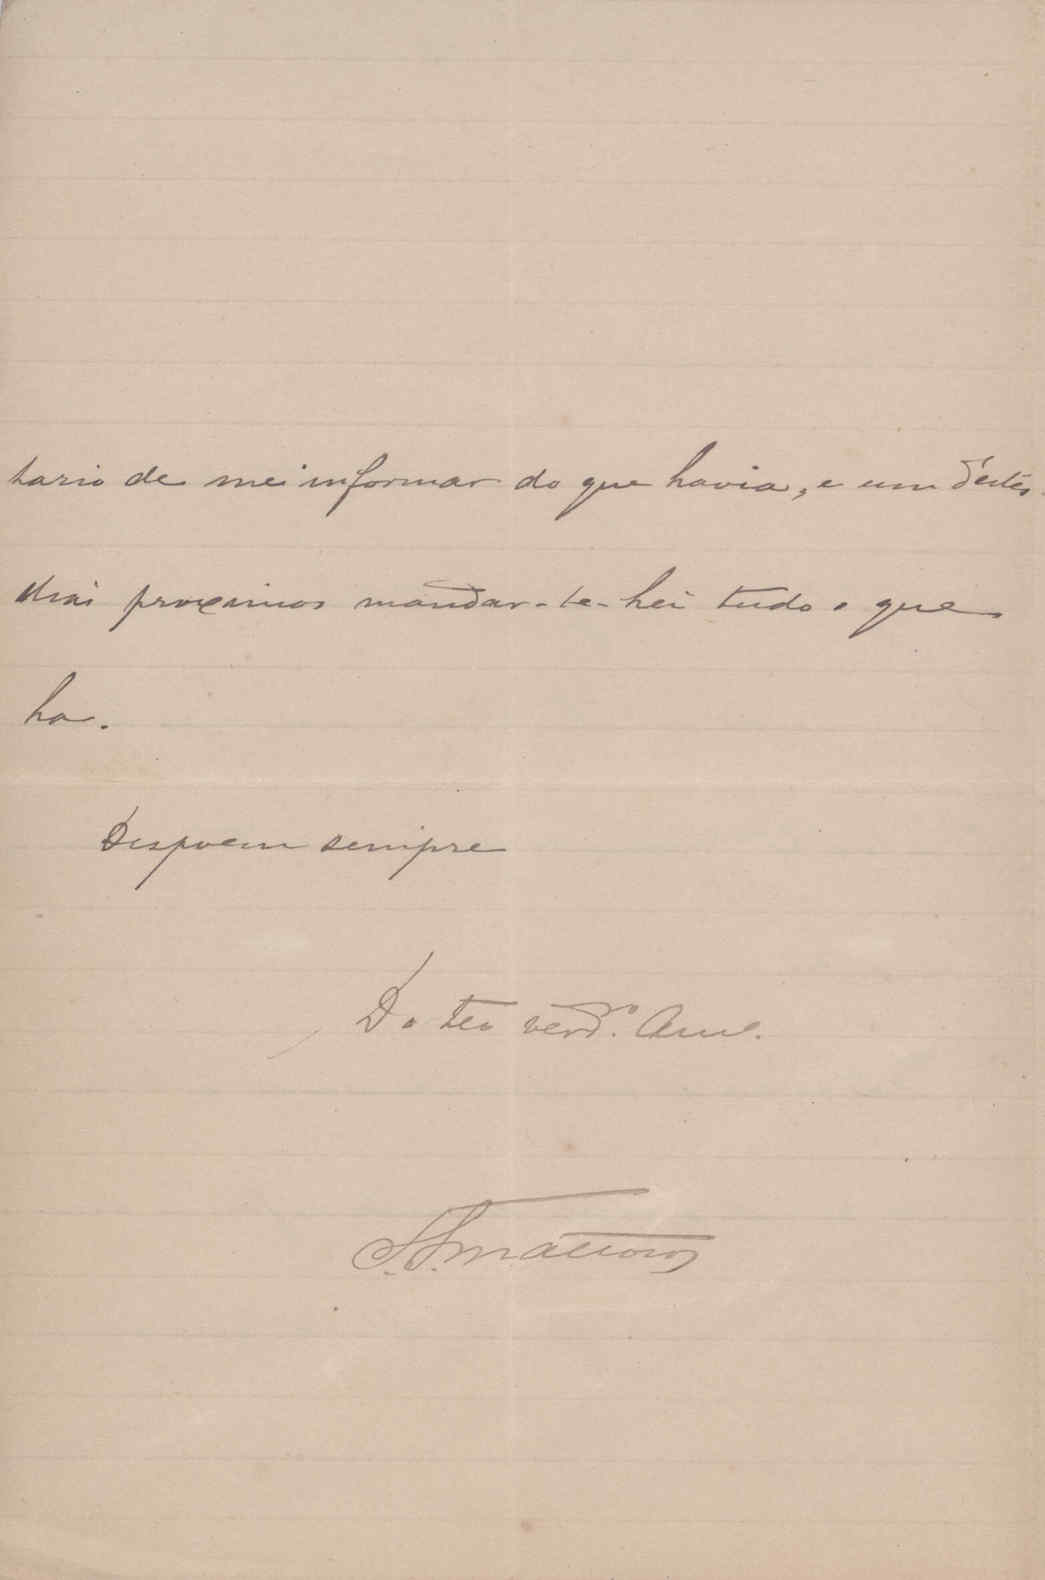 tario de me informar do que havia, e um d'estes
dias proximos mandar-te-hei tudo o que
ha.
Dispoem sempre
Do teu verd.º Am.º
J. J. Mattoso